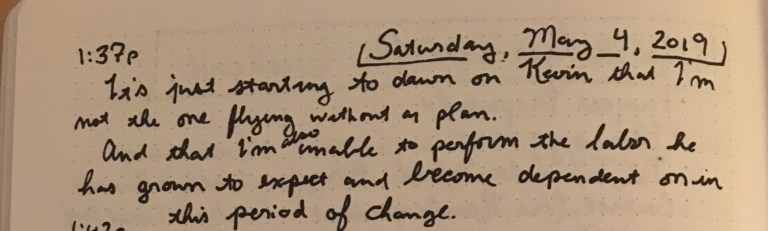 1:37p [Saturday, May 4, 2019]
It's just starting to dawn on Kevin that I'm
not the one flying without a plan.
And that I'm also unable to perform the labor he
has grown to expect and become dependent on in
this period of change.